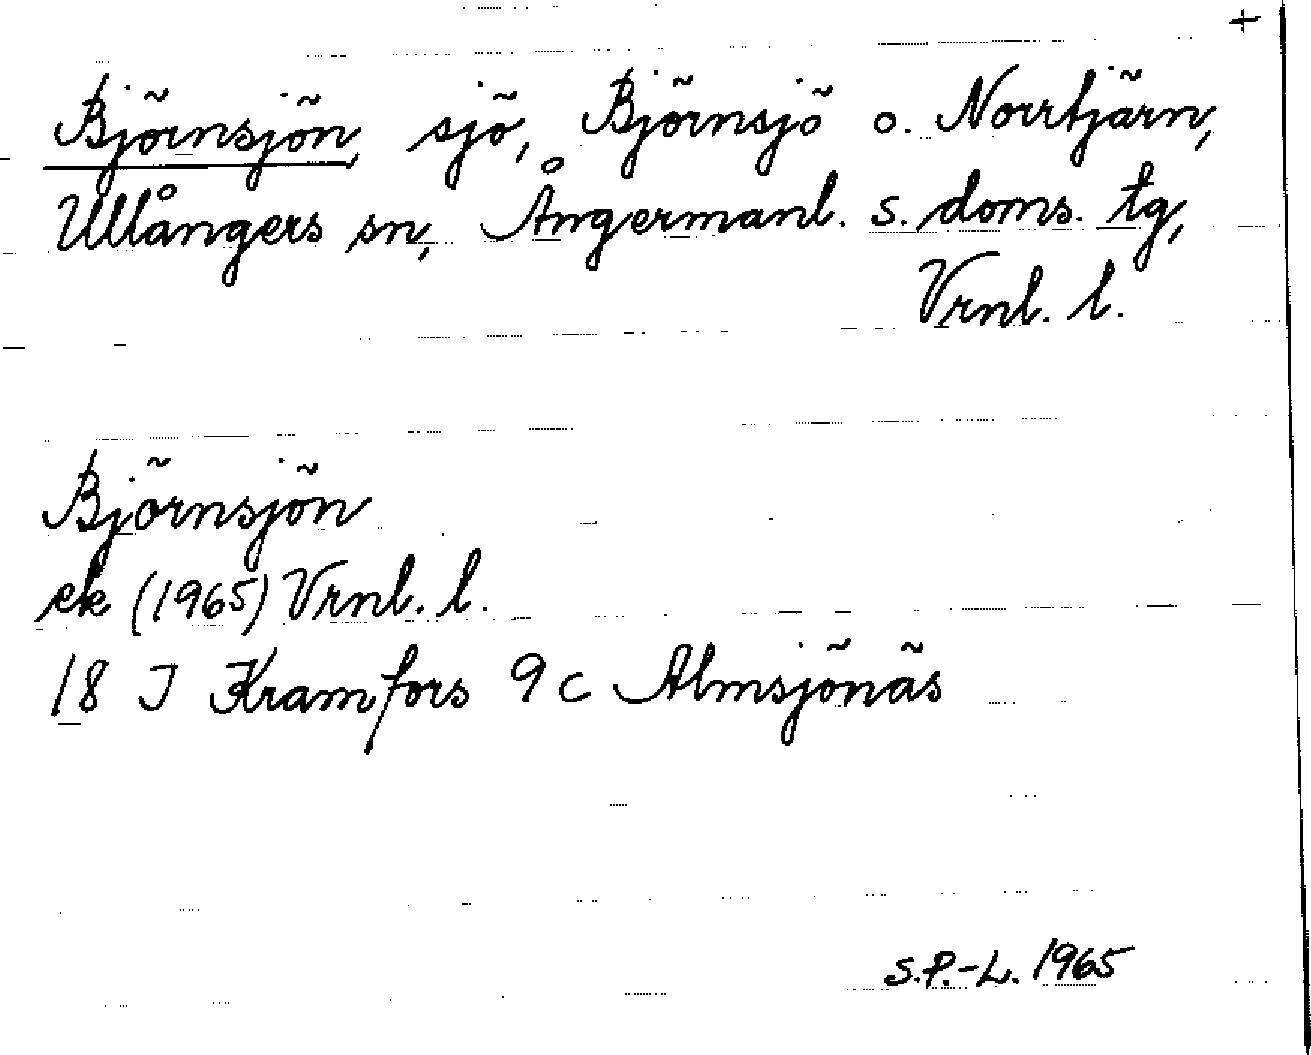 +
Björnsjön, sjö, Björnsjö o. Norrtjärn,
Ullångers sn, Ångermanl. s. doms. tg,
Vrnl. l.
Björnsjön
ek (1965) Vrnl. l.
18 I Kramfors 9c Almsjönäs
S.P.-L. 1965